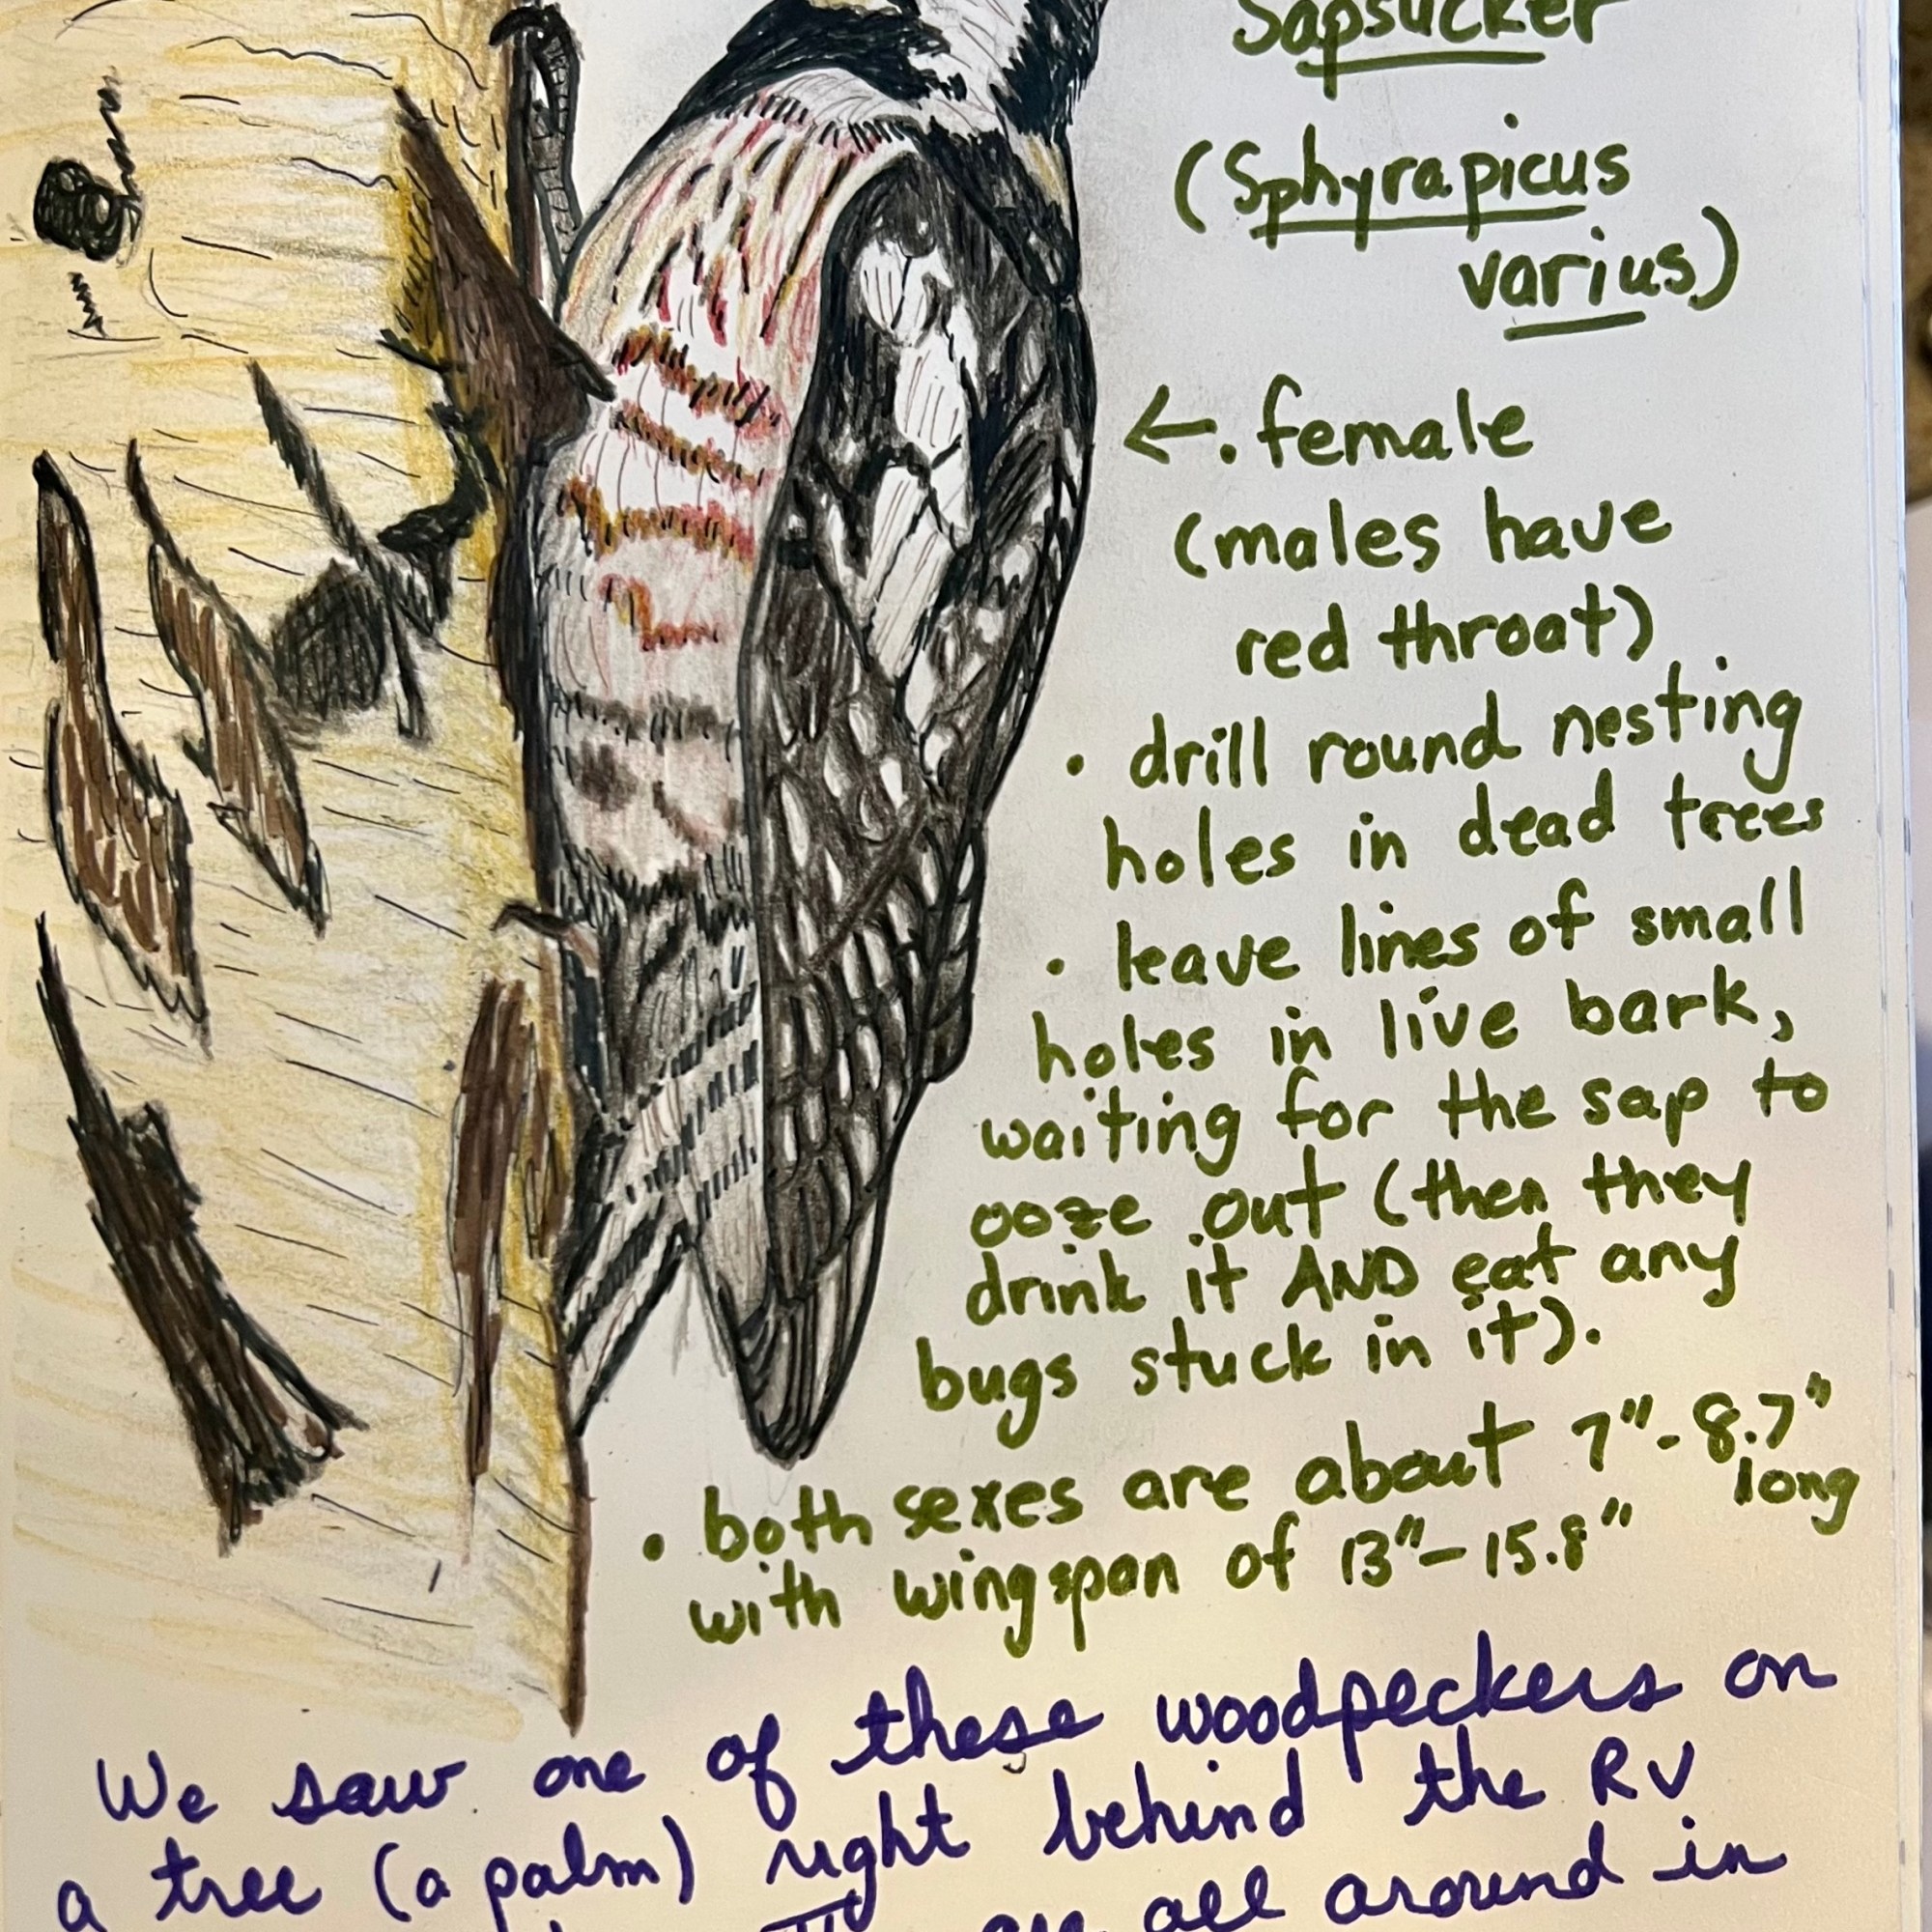 Sapsucker
(Sphyrapicus
varius)
←. female
(males have
red throat)
• drill round nesting
holes in dead trees
• leave lines of small
holes in live bark,
waiting for the sap to
ooze out (then they
drink it AND eat any
bugs stuck in it).
• both sexes are about 7"-8.7"
long
with wingspan of 13"-15.8"
We saw one of these woodpeckers on
a tree (a palm) right behind the RV
are all around in